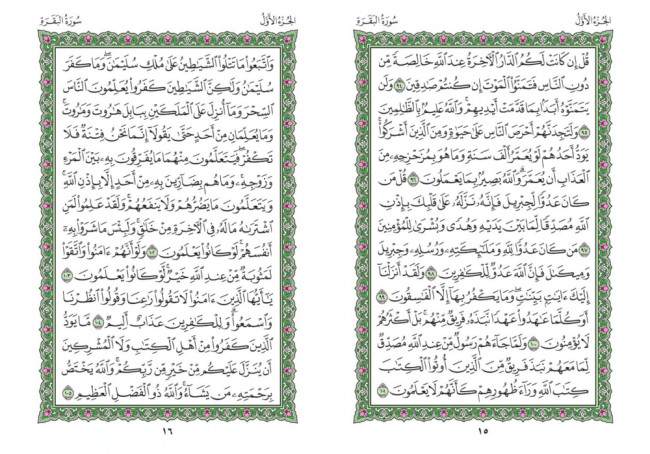 الجزء الأول
سورة البقرة
قل إن كانت لكم الدار الآخرة عند الله خالصة من
دون الناس فتمنوا الموت إن كنتم صدقين ٩٤ ولن
يتمنوه أبدا بما قدمت أيديهم والله عليم بالظلمين
٩٥ ولتجدنهم أحرص الناس على حيوة ومن الذين أشركوا
يود أحدهم لو يعمر ألف سنة وما هو بمزحزحه من
العذاب أن يعمر والله بصير بما يعملون ٩٦ قل من
كان عدوا لجبريل فإنه نزله على قلبك بإذن
الله مصدقا لما بين يديه وهدى وبشرى للمؤمنين
٩٧ من كان عدوا لله وملئكته ورسله وجبريل
وميكىل فإن الله عدو للكفرين ٩٨ ولقد أنزلنا
إليك ءايت بينت وما يكفر بها إلا الفسقون ٩٩
أوكلما عهدوا عهدا نبذه فريق منهم بل أكثرهم
لا يؤمنون ١٠٠ ولما جاءهم رسول من عند الله مصدق
لما معهم نبذ فريق من الذين أوتوا الكتب
كتب الله وراء ظهورهم كأنهم لا يعلمون ١٠١
١٥
الجزء الأول
سورة البقرة
واتبعوا ما تتلوا الشيطين على ملك سليمن وما كفر
سليمن ولكن الشيطين كفروا يعلمون الناس
السحر وما أنزل على الملكين ببابل هروت ومروت
وما يعلمان من أحد حتى يقولا إنما نحن فتنة فلا
تكفر فيتعلمون منهما ما يفرقون به بين المرء
وزوجه وما هم بضارين به من أحد إلا بإذن الله
ويتعلمون ما يضرهم ولا ينفعهم ولقد علموا لمن
اشترىه ما له في الآخرة من خلق ولبئس ما شروا به
أنفسهم لو كانوا يعلمون ١٠٢ ولو أنهم ءامنوا واتقوا
لمثوبة من عند الله خير لو كانوا يعلمون ١٠٣
يأيها الذين ءامنوا لا تقولوا رعنا وقولوا انظرنا
واسمعوا وللكفرين عذاب أليم ١٠٤ ما يود
الذين كفروا من أهل الكتب ولا المشركين
أن ينزل عليكم من خير من ربكم والله يختص
برحمته من يشاء والله ذو الفضل العظيم ١٠٥
١٦